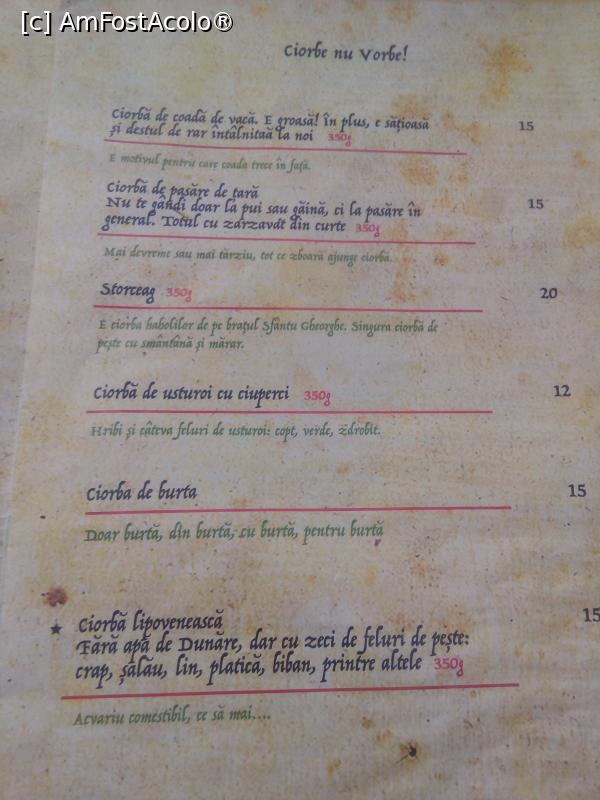 [c] AmFostAcolo®
Ciorbe nu Vorbe!
Ciorbă de coadă de vacă. E groasă! În plus, e sățioasă 15
și destul de rar întâlnităa la noi 350g
E motivul pentru care coada trece în față.
Ciorbă de pasăre de țară
Nu te gândi doar la pui sau găină, ci la pasăre în 15
general. Totul cu zarzavat din curte 350g
Mai devreme sau mai târziu, tot ce zboară ajunge ciorbă.
Storceag 350g 20
E ciorba haholilor de pe brațul Sfântu Gheorghe. Singura ciorbă de
pește cu smântână și mărar.
Ciorbă de usturoi cu ciuperci 350g 12
Hribi și câteva feluri de usturoi: copt, verde, zdrobit.
Ciorba de burta 15
Doar burtă, din burtă, cu burtă, pentru burtă
★ Ciorbă lipovenească 15
Fără apă de Dunăre, dar cu zeci de feluri de pește:
crap, șalău, lin, platică, biban, printre altele 350g
Acvariu comestibil, ce să mai....